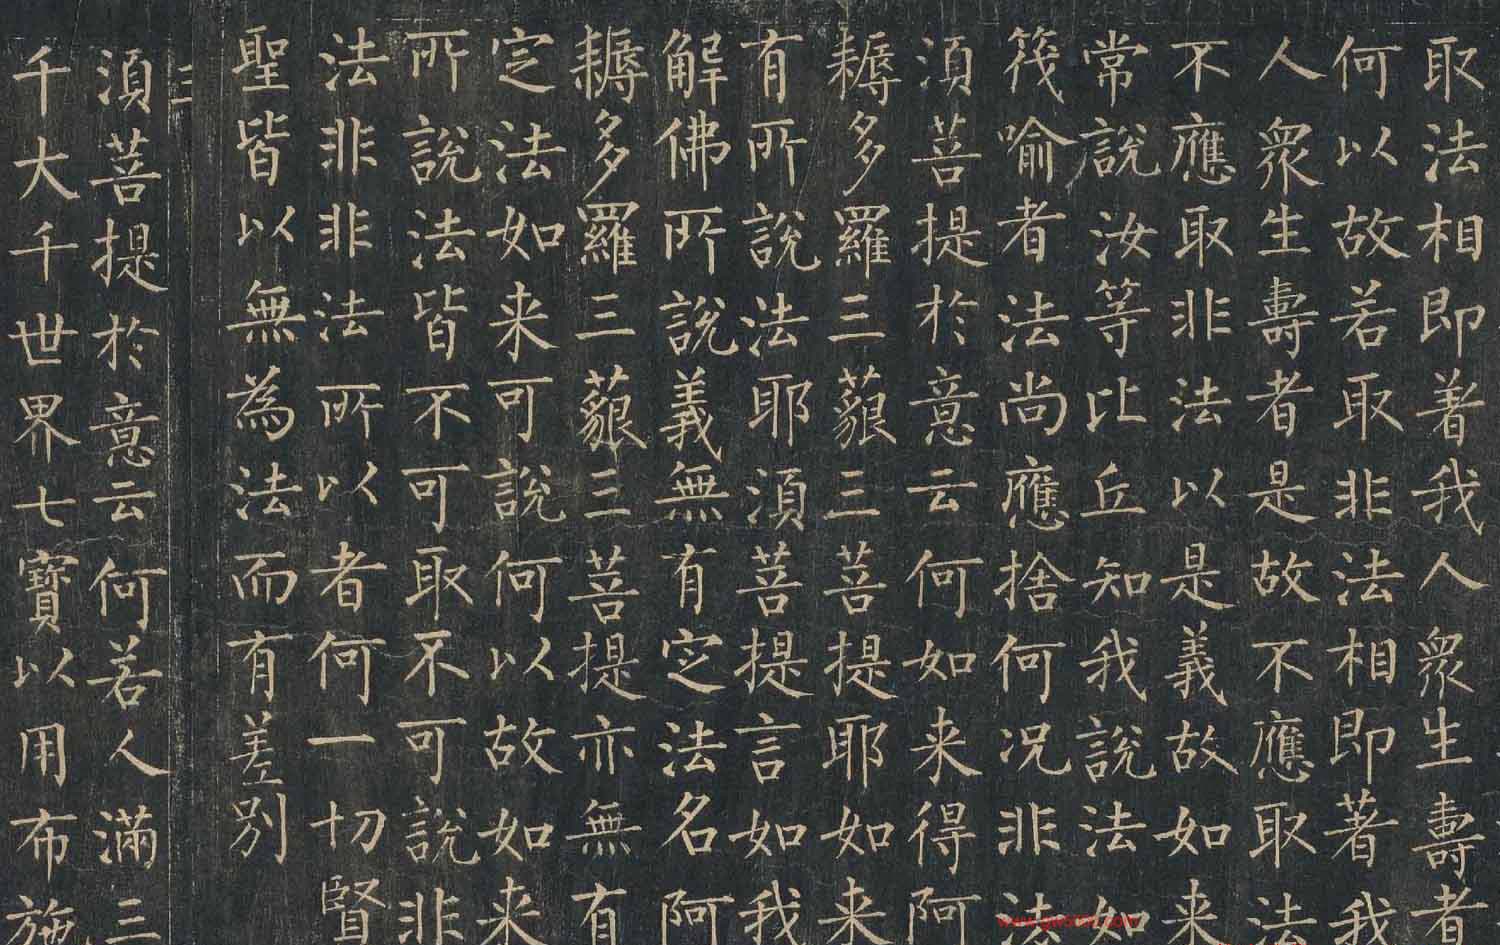 取法相即著我人眾生壽者
何以故若取非法相即著我
人眾生壽者是故不應取法
不應取非法以是義故如来
常說汝等比丘知我說法如
筏喻者法尚應捨何况非法
須菩提於意云何如来得阿
耨多羅三藐三菩提耶如来
有所說法耶須菩提言如我
解佛所說義無有定法名阿
耨多羅三藐三菩提亦無有
定法如来可說何以故如来
所說法皆不可取不可說非
法非非法所以者何一切賢
聖皆以無為法而有差別
三
須菩提於意云何若人滿三
千大千世界七寶以用布施